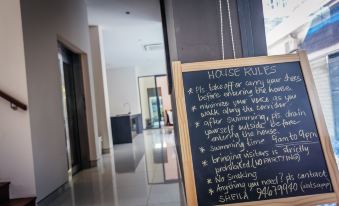 HOUSE RULES
* Pls take off or carry your shoes
before entering the house.
* minimize your voice as you
walk along the corridor
* after swimming, pls drain
yourself outside before
entering the house.
* swimming time 9am to 9pm
* bringing visitors is strictly
prohibited (NO PARTYING)
* No smoking
* Anything you need? pls contact
SHEILA 94679940 (whatsapp)